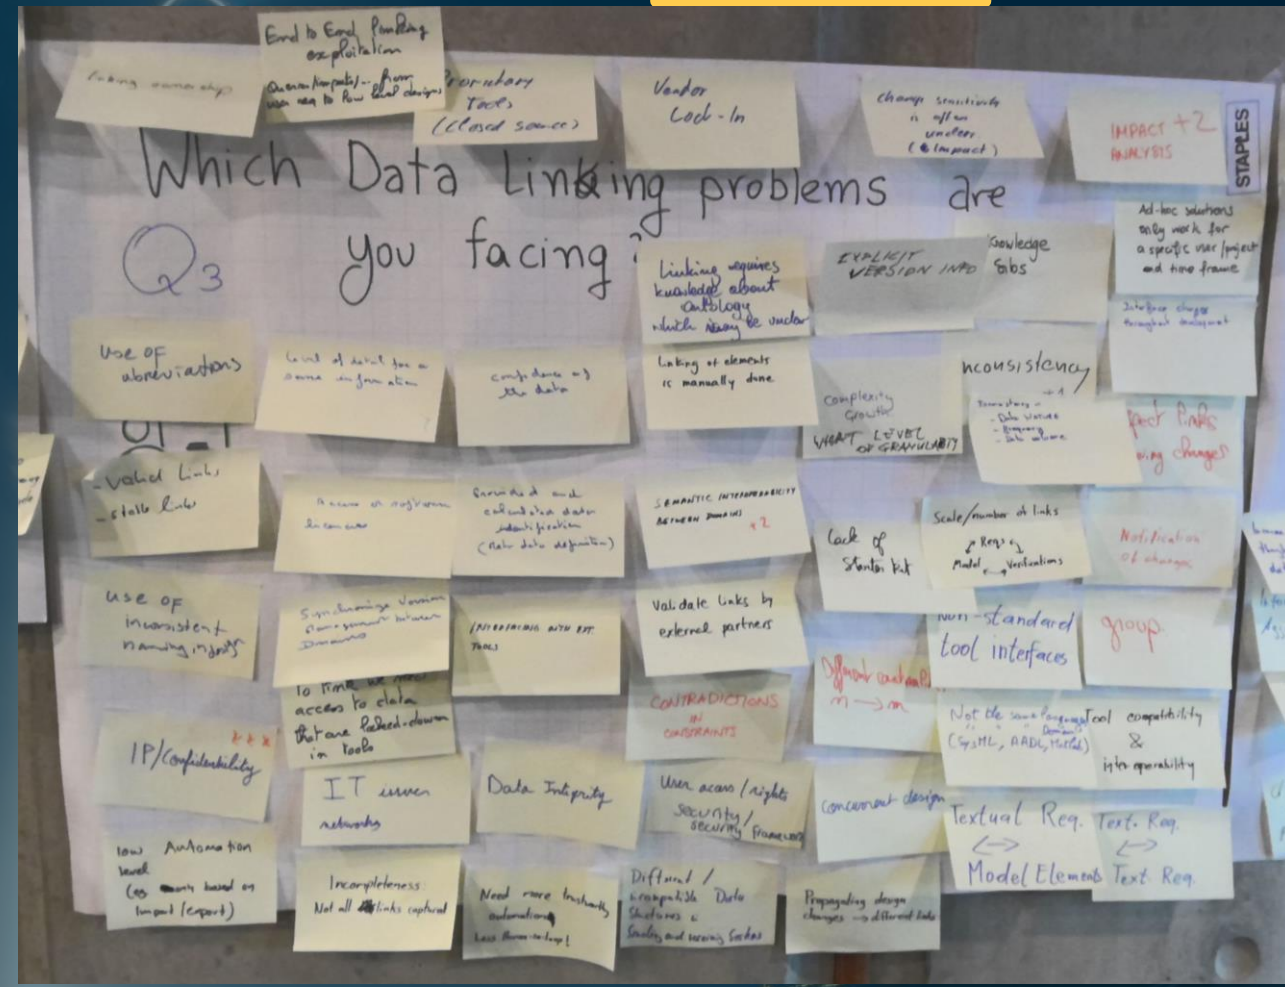 linking ownership
End to End Linking
exploitation
user req to low level designs
Proprietary
Tools
(closed source)
Vendor
Lock-In
Change sensitivity
is often
unclear
(Impact)
IMPACT +2
ANALYSIS
STAPLES
Which Data Linking problems are
you facing?
Q3
Linking requires
knowledge about
ontology
which may be unclear
EXPLICIT
VERSION INFO
Knowledge
Ad-hoc solutions
only work for
a specific user/project
and time frame
Interface changes
throughout development
use of
abreviations
Level of detail for a
same information
confidence of
the data
Linking of elements
is manually done
complexity
Growth
WHAT LEVEL
OF GRANULARITY
Inconsistency
+1
- Data volume
links
changes
- valid Links
- stable links
Access or
licences
Provided and
calculated data
identification
(Meta data definition)
SEMANTIC INTEROPERABILITY
BETWEEN DOMAINS
+2
Lack of
Starter kit
Scale/number of links
Reqs
Model Verifications
Notification
of changes
use of
inconsistent
naming
Synchronize Version
Management between
Domains
INTERFACING WITH EXT.
TOOLS
Validate links by
external partners
Non-standard
tool interfaces
group
access to data
that are locked-down
in tools
CONTRADICTIONS
IN
CONSTRAINTS
Different
n → m
Not the same language
Domains
(SysML, AADL, Matlab)
Tool compatibility
&
interoperability
***
IP/Confidentiality
IT issues
networks
Data Integrity
User access/rights
security/
security framework
concurrent design
Textual Req.
⟷
Model Elements
Text. Req.
⟷
Text. Req.
low Automation
level
based on
Import/export)
Incompleteness:
Not all links captured
Need more trustworthy
automation
Less
Different/
Incompatible Data
Structures
Propagating design
changes → different links